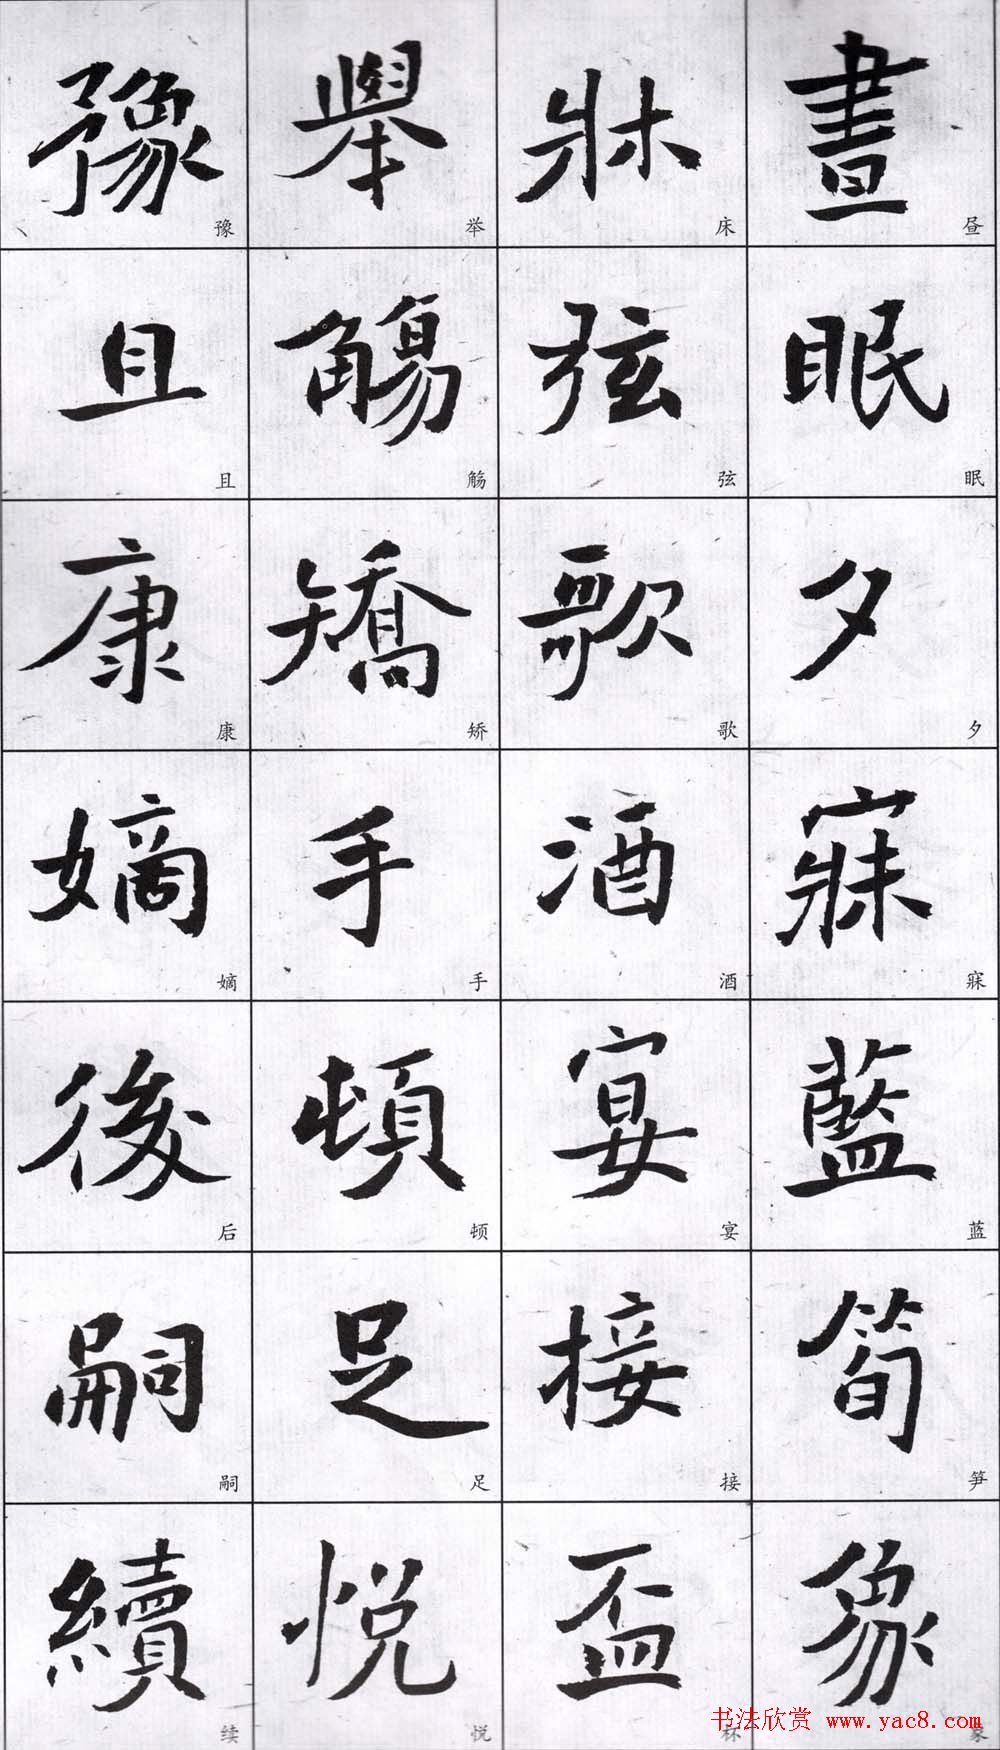 晝眠夕寐藍筍象
昼眠夕寐蓝笋象
牀弦歌酒宴接盃
床弦歌酒宴接杯
舉觴矯手頓足悦
举觞矫手顿足悦
豫且康嫡後嗣續
豫且康嫡后嗣续
书法欣赏 www.yac8.com